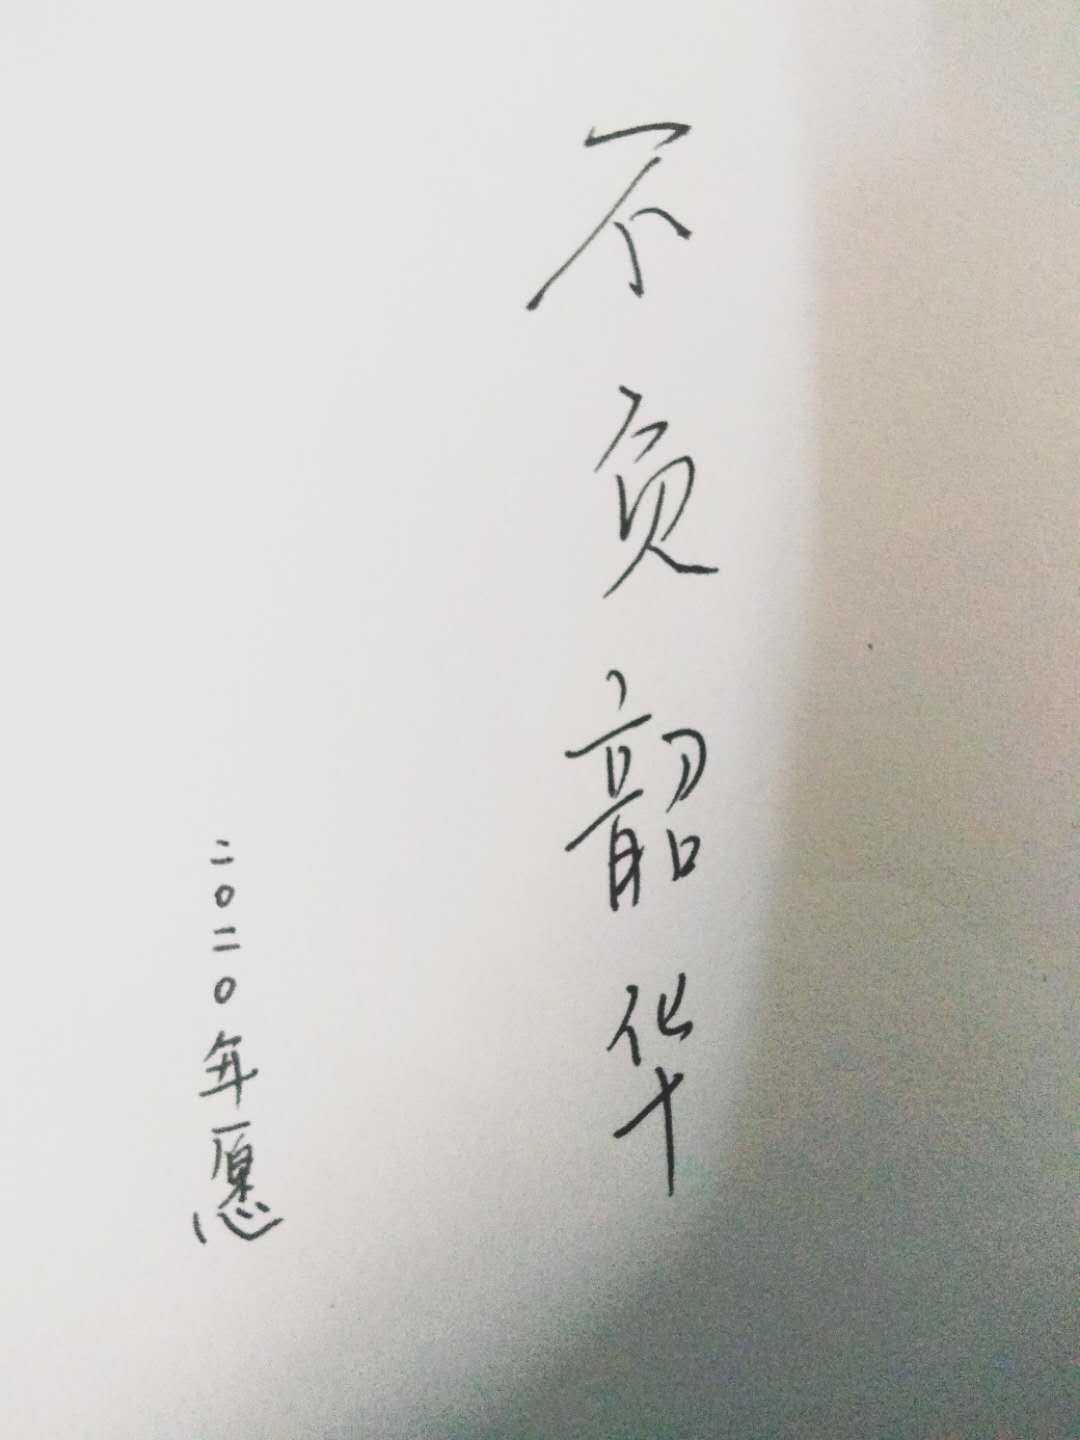 不负韶华
二〇二〇年愿